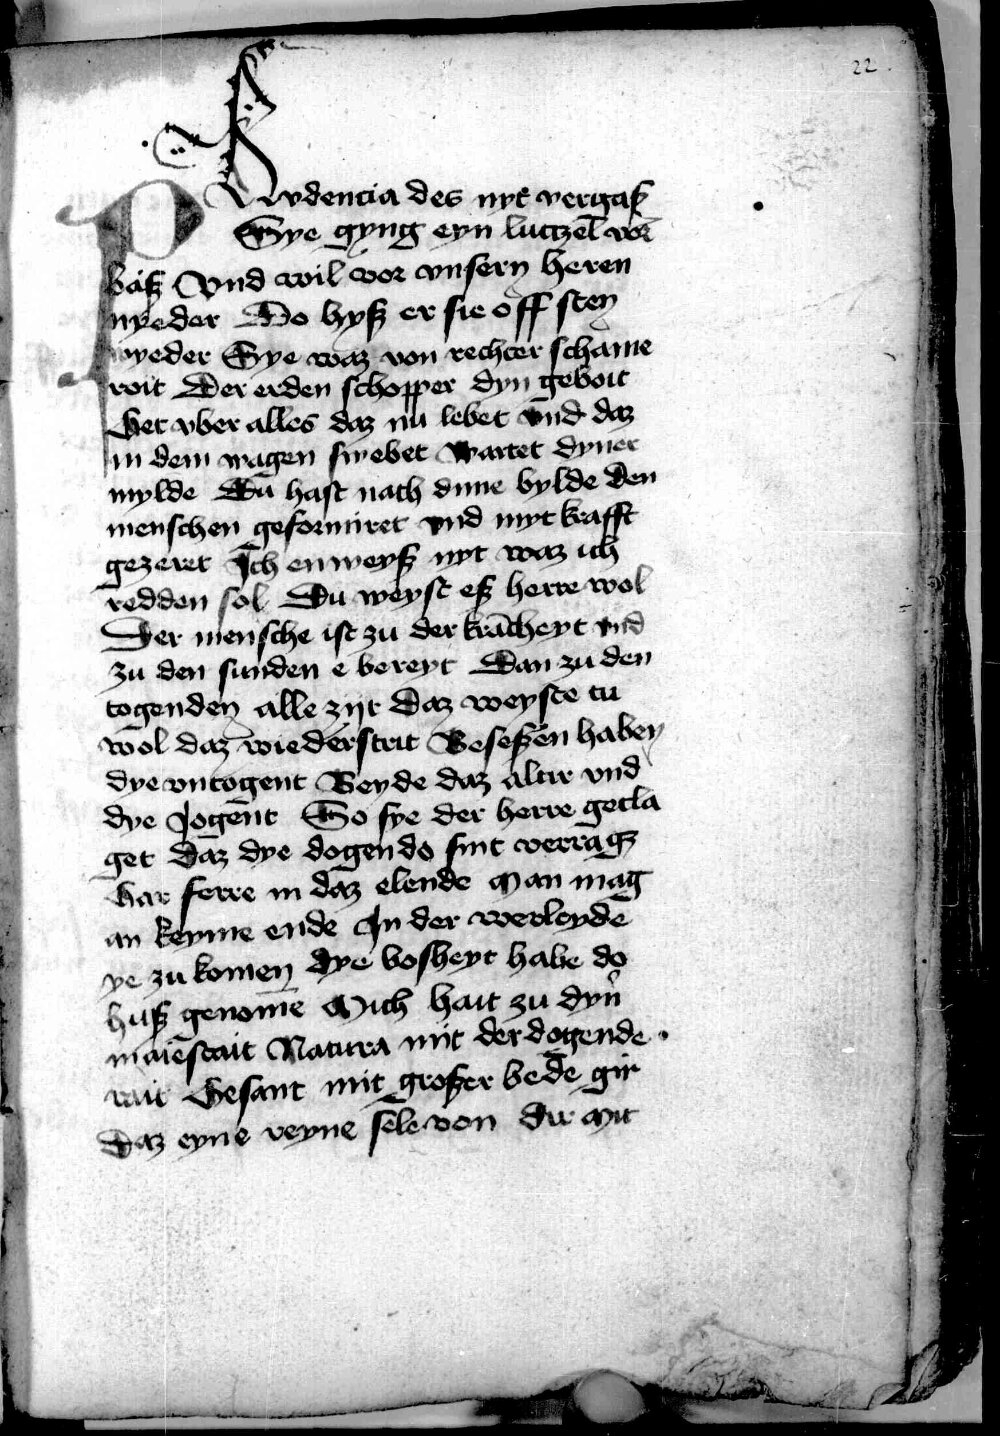 22
PRudencia des nyt vergaß
Sye gyng eyn luttzel vor
baß Vnd viel vor vnsern heren
nyeder Do hyß er sie off sten
wyeder Sye waz von rechter schame
roit Der erden schopper dyn geboit
Get vber alles daz nu lebet vnd daz
in dem wagen swebet Wartet dyner
mylde Du hast nach dime bylde den
menschen geformiret vnd myt krafft
gezeret Ich enweyß nyt waz ich
redden sol Du weyst eß herre wol
Der mensche ist zu der krācheyt vnd
zu den sunden e bereyt Dan zu den
togenden alle zijt Daz weyste tu
wol daz wiederstrit Beseßen haben
dye vntogent Beyde daz alter vnd
dye Jogent So sye der herre gecla
get Daz dye dogende sint verragz
Gar ferre in daz elende Man mag
an keyme ende In der werlcyde
ye zu komen Dye bosheyt habe do
huß genome Mich hait zu dyn
maiestait Natura mit der dogende
rait Gesant mit großer bede gir
Daz eyne reyne sele von dir Mit